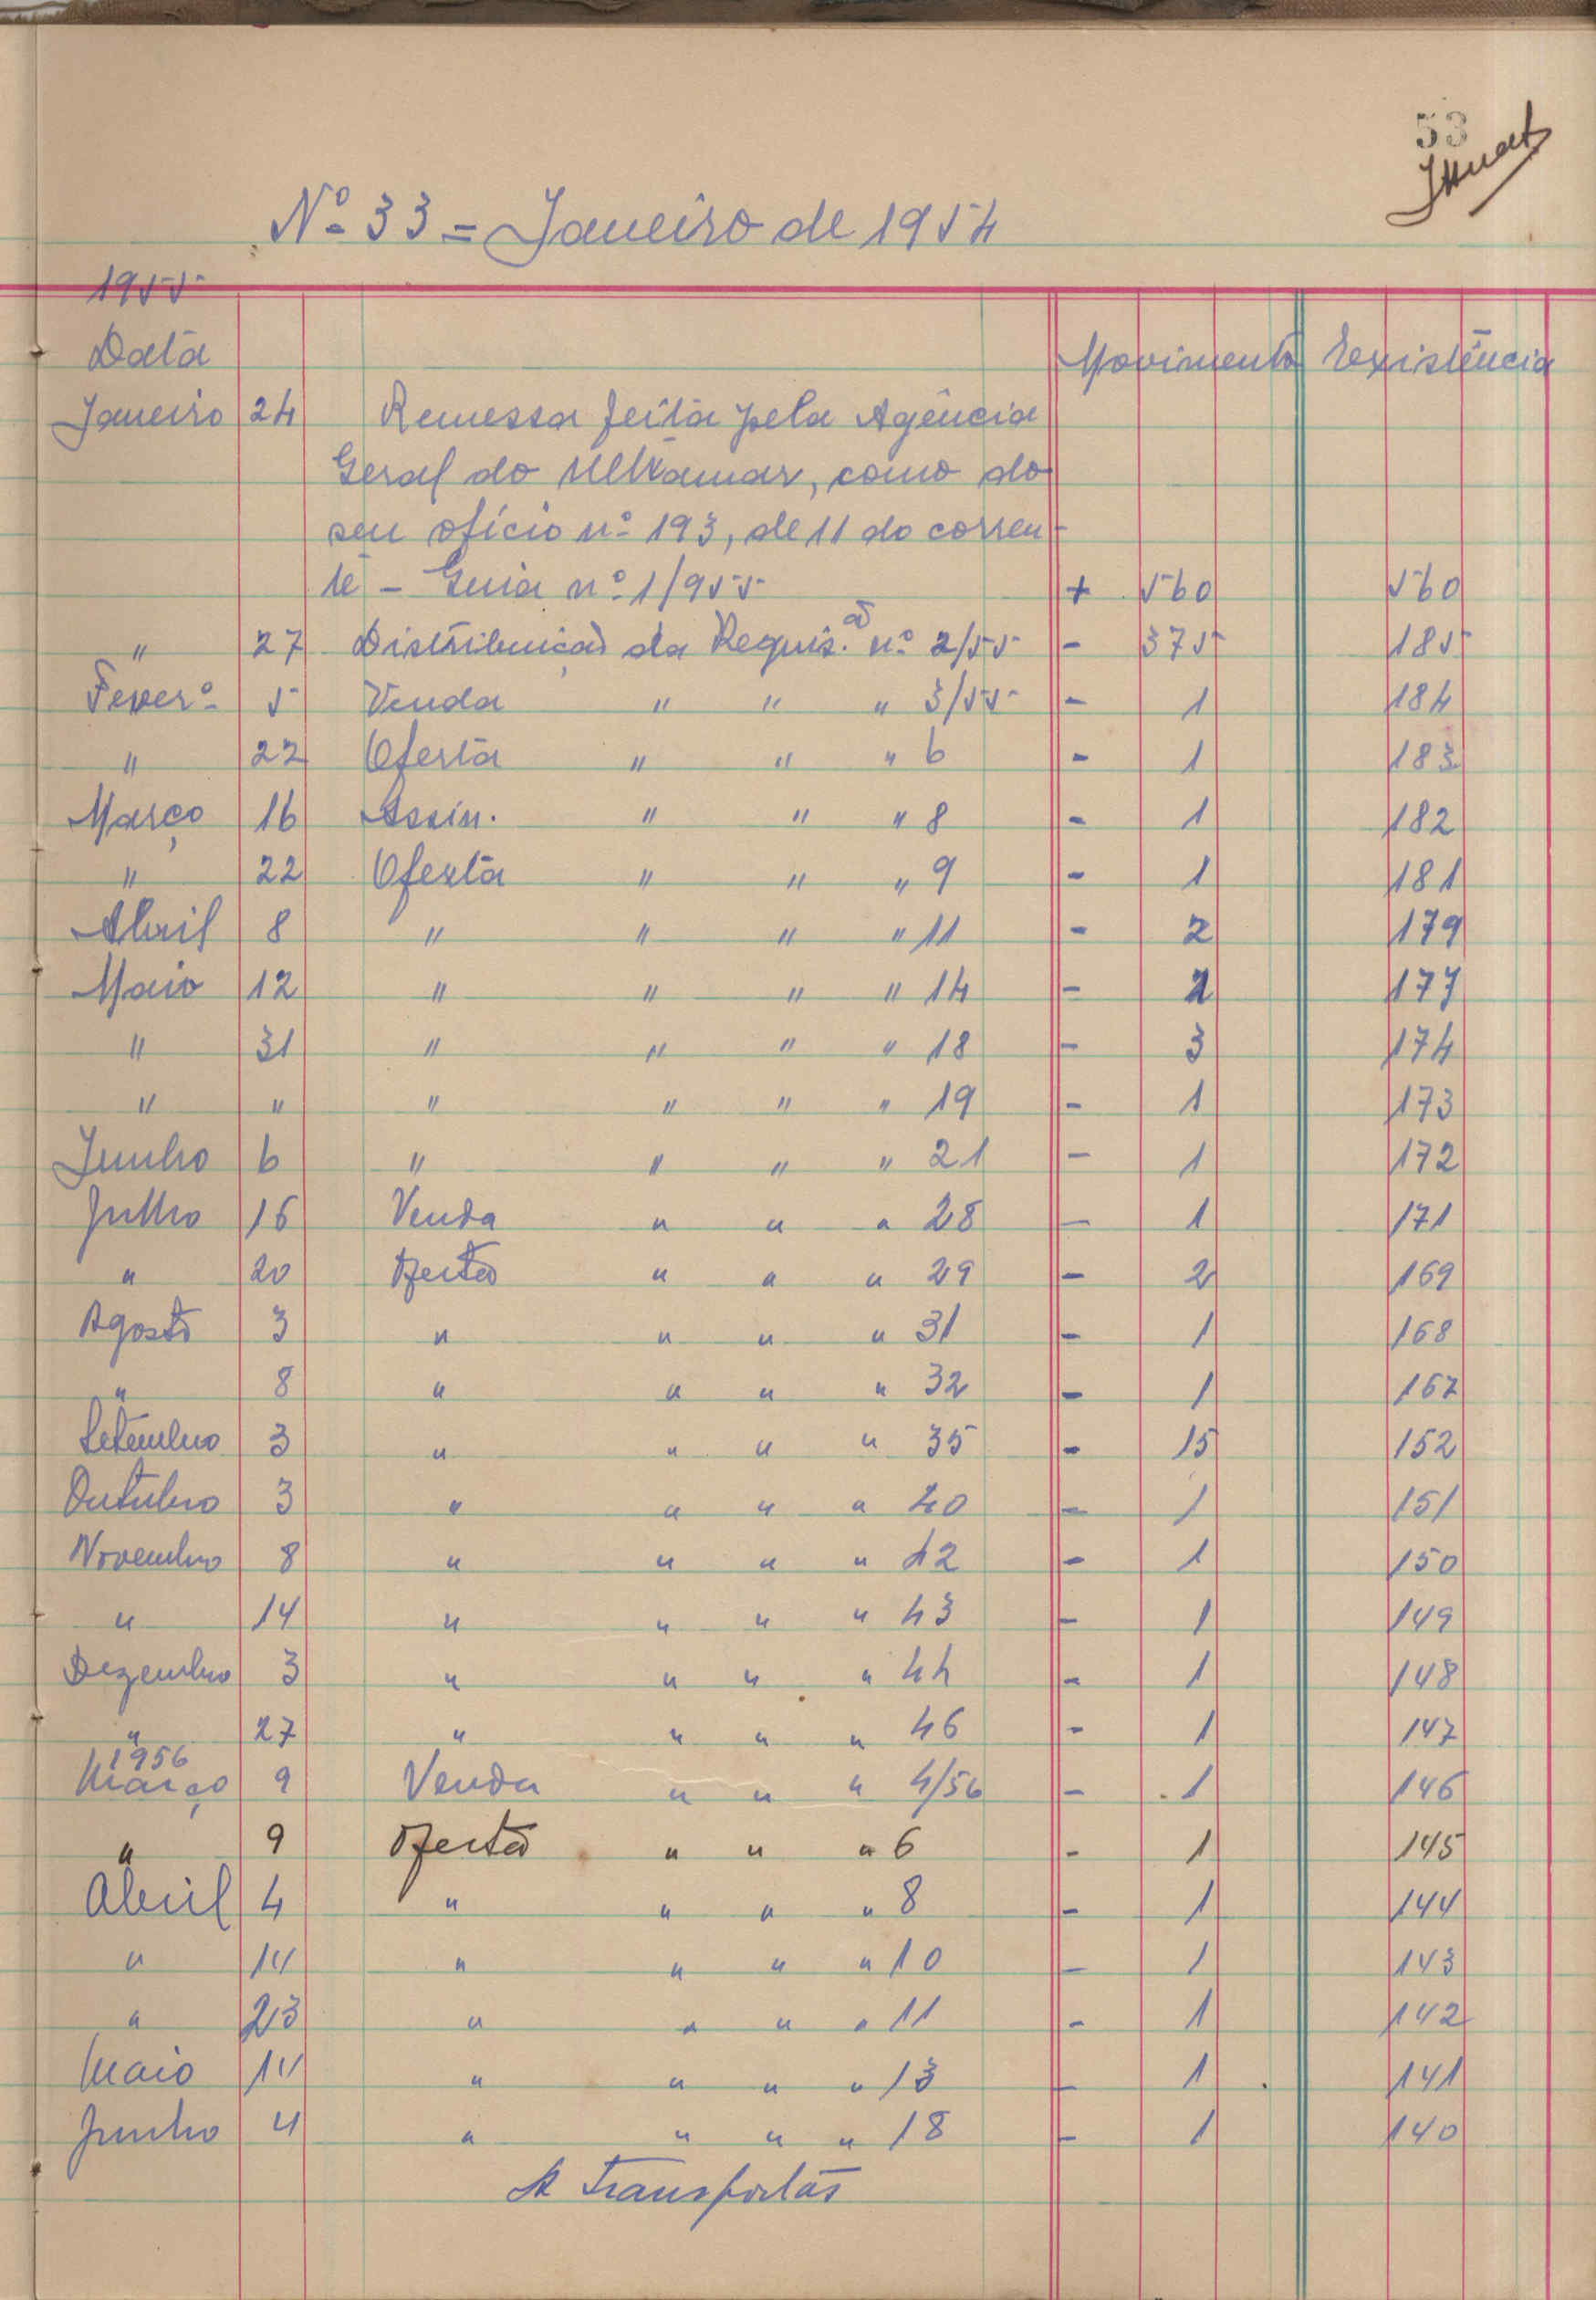 53
Nº 33 = Janeiro de 1954
1955
Data Movimento Existência
Janeiro 24 Remessa feita pela Agência
Geral do Ultramar, como do
seu ofício nº 193, de 11 do corren-
te - Guia nº 1/955 + 560 560
" 27 Distribuição da Requis.ão nº 2/55 - 375 185
Feverº 5 Venda " " " 3/55 - 1 184
" 22 Oferta " " " 6 - 1 183
Março 16 Assin. " " " 8 - 1 182
" 22 Oferta " " " 9 - 1 181
Abril 8 " " " " 11 - 2 179
Maio 12 " " " " 14 - 2 177
" 31 " " " " 18 - 3 174
" " " " " " 19 - 1 173
Junho 6 " " " " 21 - 1 172
Julho 16 Venda " " " 28 - 1 171
" 20 Oferta " " " 29 - 2 169
Agosto 3 " " " " 31 - 1 168
" 8 " " " " 32 - 1 167
Setembro 3 " " " " 35 - 15 152
Outubro 3 " " " " 40 - 1 151
Novembro 8 " " " " 42 - 1 150
" 14 " " " " 43 - 1 149
Dezembro 3 " " " " 44 - 1 148
" 27 " " " " 46 - 1 147
1956
Março 9 Venda " " " 4/56 - 1 146
" 9 Oferta " " " 6 - 1 145
Abril 4 " " " " 8 - 1 144
" 14 " " " " 10 - 1 143
" 23 " " " " 11 - 1 142
Maio 14 " " " " 13 - 1 141
Junho 4 " " " " 18 - 1 140
A transportar